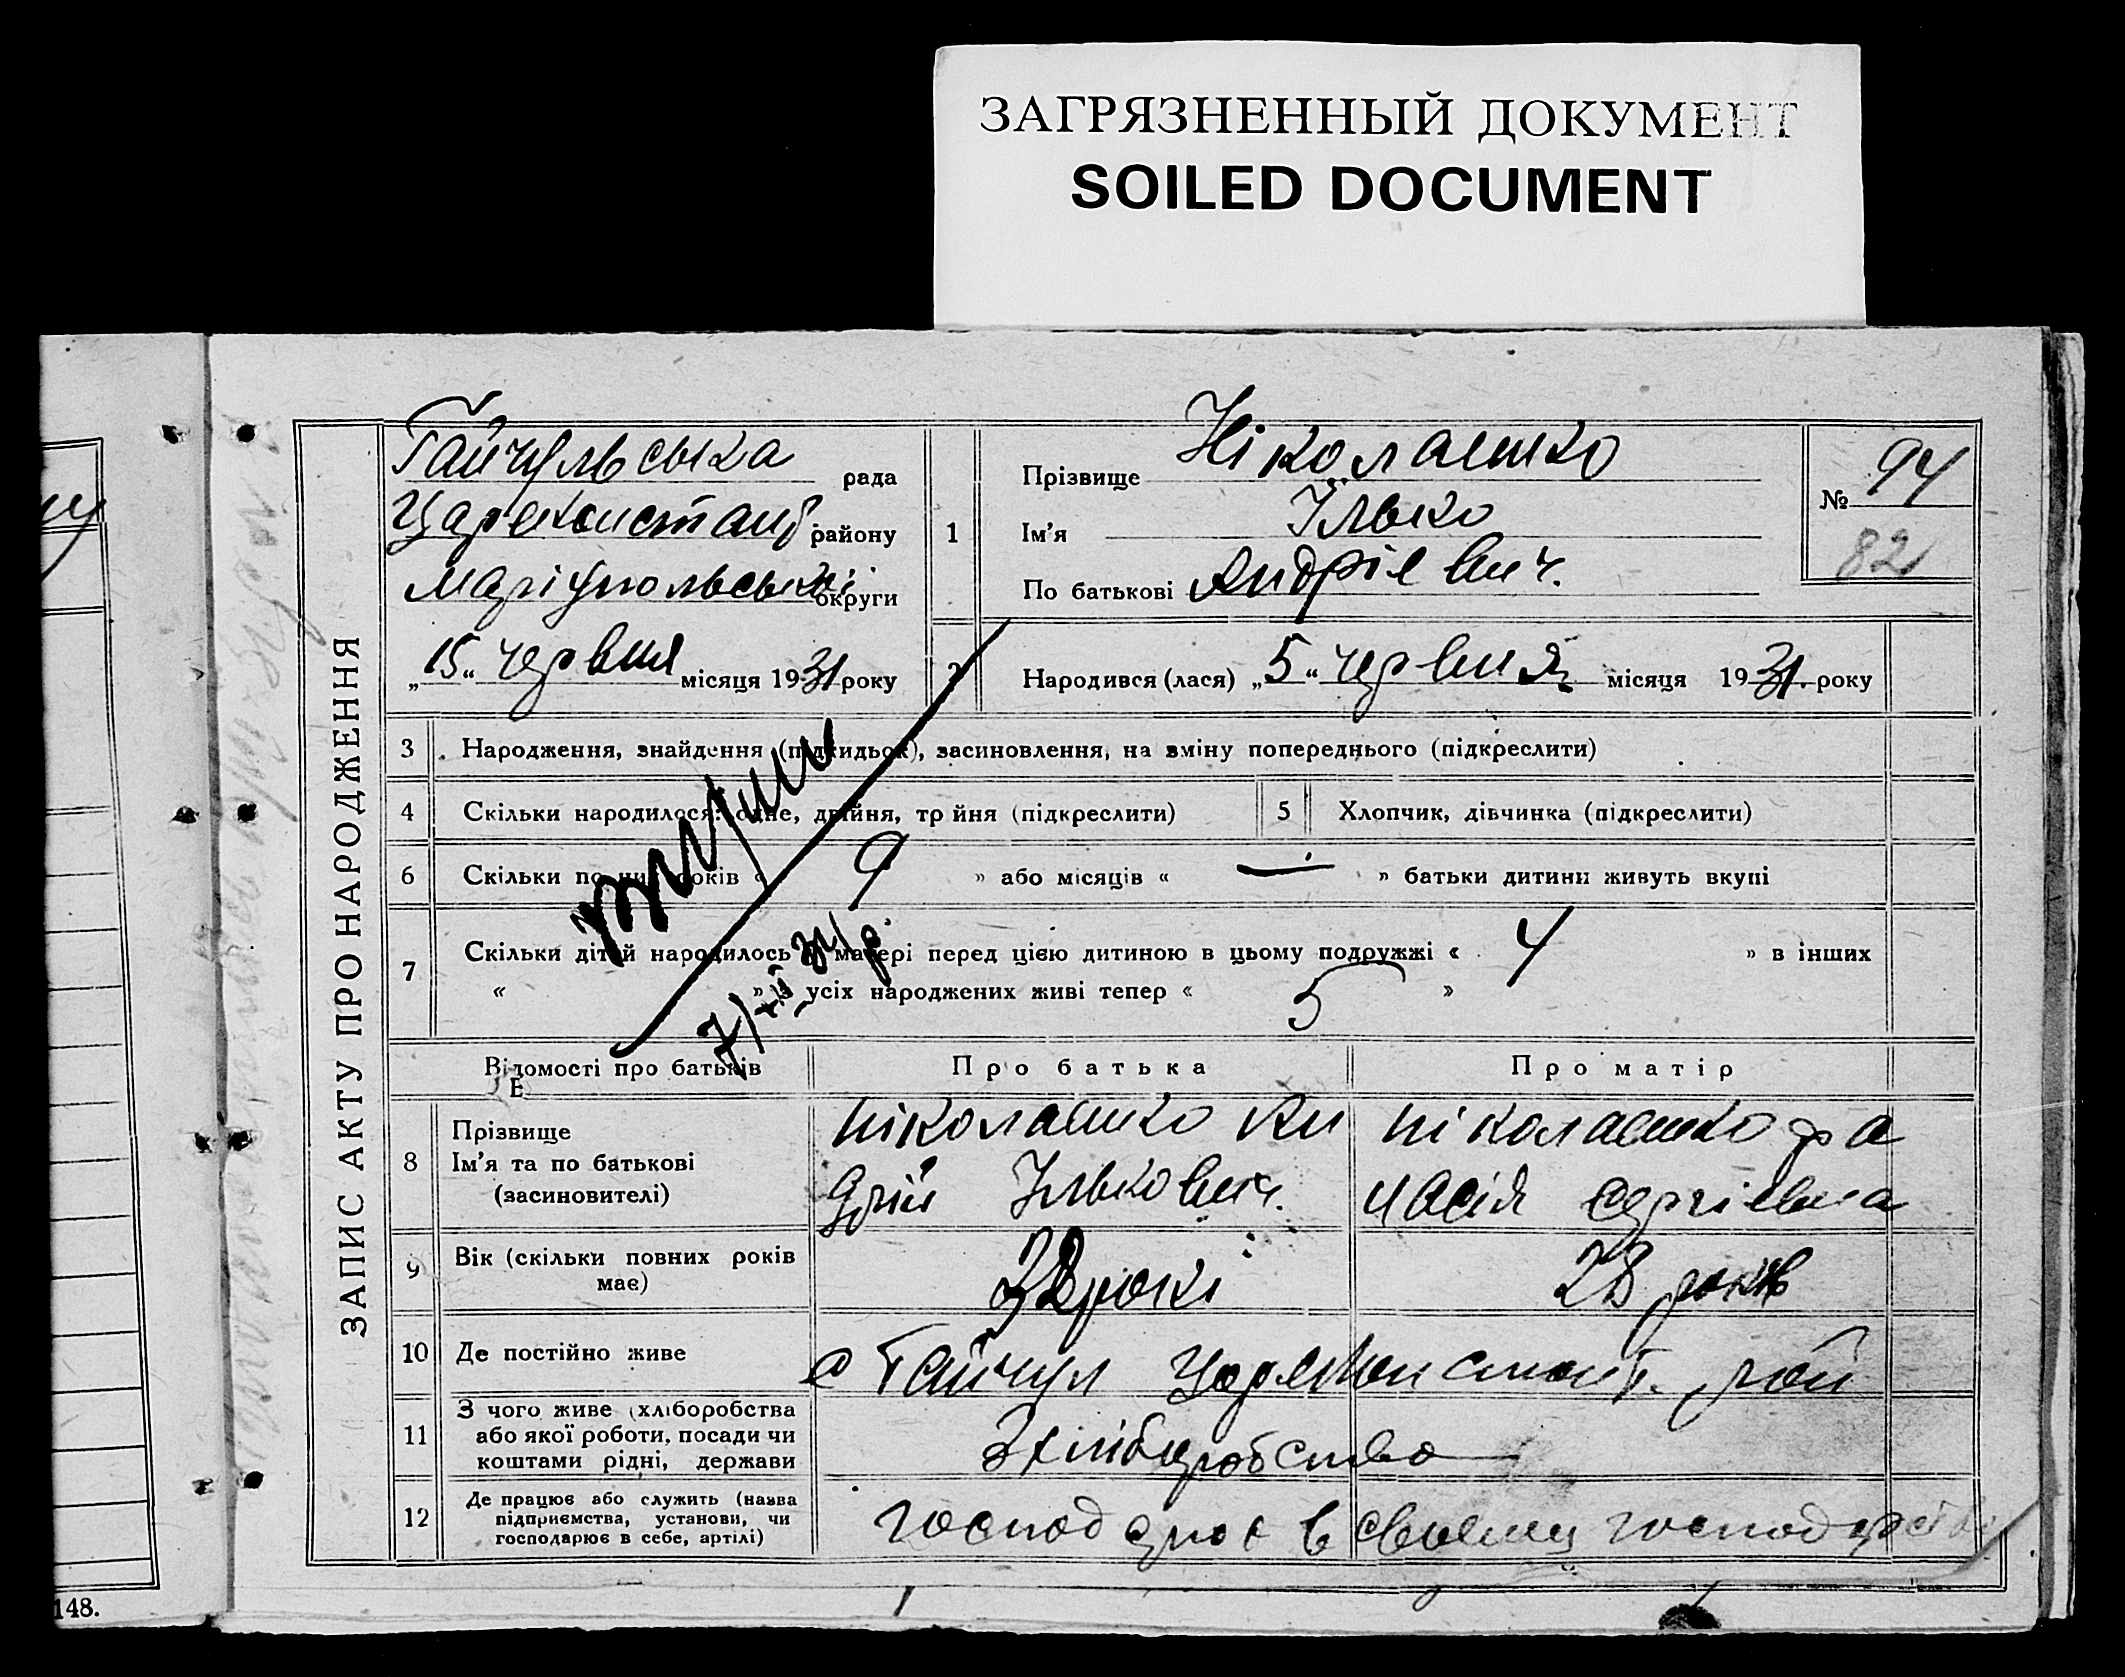 ЗАГРЯЗНЕННЫЙ ДОКУМЕНТ
SOILED DOCUMENT
ЗАПИС АКТУ ПРО НАРОДЖЕННЯ
Гайчульська рада
Царекостант. району
Маріупольської округи
„15“ червня місяця 1931 року
1
Прізвище Ніколаєнко
Ім'я Ілько
По батькові Андрієвич.
№ 94
82
2 Народився (лася) „5“ червня місяця 1931. року
3 Народження, знайдення (підкидьок), засиновлення, на зміну попереднього (підкреслити)
4 Скільки народилося: одне, двійня, тр йня (підкреслити)
5 Хлопчик, дівчинка (підкреслити)
6 Скільки повних років « 9 » або місяців « — » батьки дитини живуть вкупі
7 Скільки дітей народилось у матері перед цією дитиною в цьому подружжі « 4 » в інших
« » з усіх народжених живі тепер « 5 »
7/XII 31 р.
Відомості про батьків Про батька Про матір
8 Прізвище
Ім'я та по батькові
(засиновителі)
Ніколаєнко Ан
дрій Ількович.
Ніколаєнко
Сергієвна
9 Вік (скільки повних років
має)
роки
28 років
10 Де постійно живе
с Гайчул рай
11 З чого живе (хліборобства
або якої роботи, посади чи
коштами рідні, держави
З хліборобства
12 Де працює або служить (назва
підприємства, установи, чи
господарює в себе, артілі)
господарює в своєму господарстві
148.